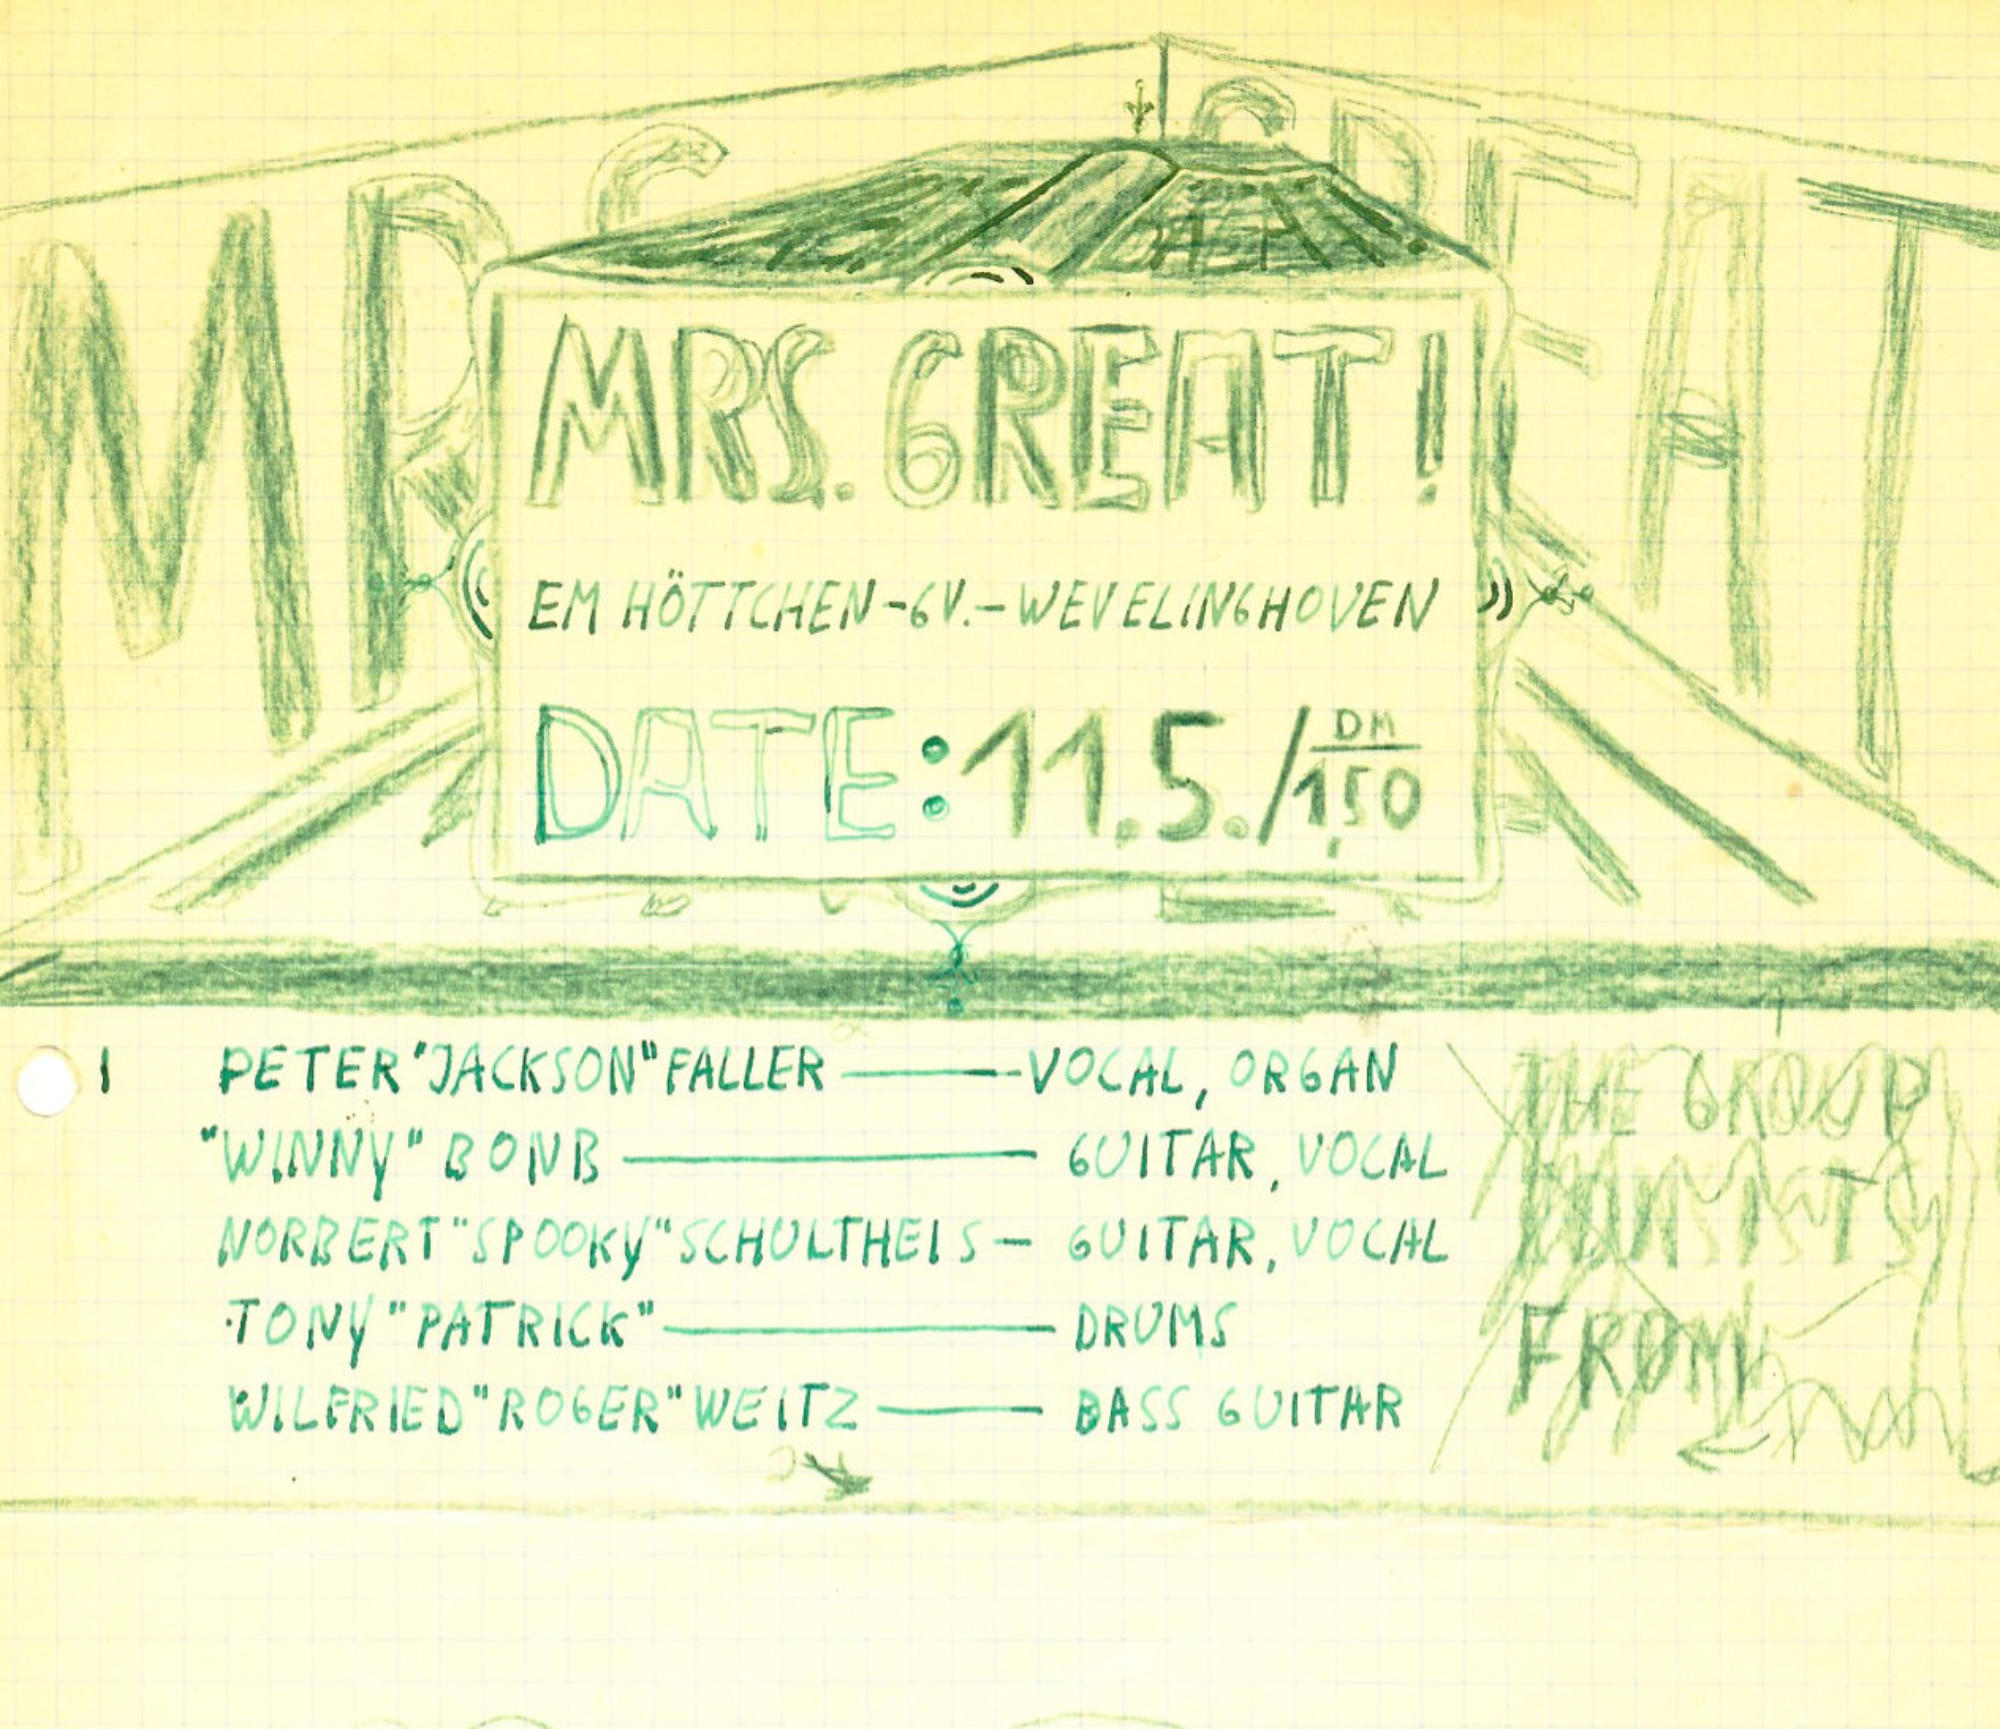 MRS GREAT
MRS. GREAT!
EM HÖTTCHEN-GV.-WEVELINGHOVEN
DATE: 11.5./DM 1,50
1
PETER "JACKSON" FALLER — VOCAL, ORGAN
"WINNY" BONB — GUITAR, VOCAL
NORBERT "SPOOKY" SCHULTHEIS — GUITAR, VOCAL
TONY "PATRICK" — DRUMS
WILFRIED "ROGER" WEITZ — BASS GUITAR
THE GROUP
CONSISTS
FROM